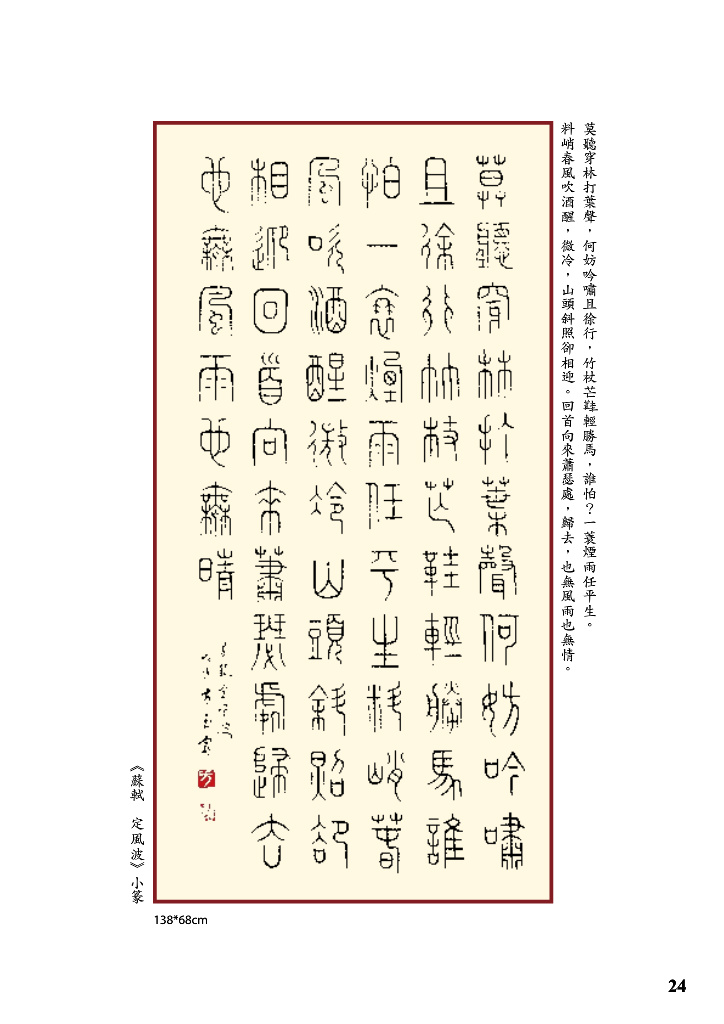 莫聽穿林打葉聲，何妨吟嘯且徐行，竹杖芒鞋輕勝馬，誰怕？一蓑煙雨任平生。
料峭春風吹酒醒，微冷，山頭斜照卻相迎。回首向來蕭瑟處，歸去，也無風雨也無情。
莫聽穿林打葉聲何妨吟嘯
且徐行竹杖芒鞋輕勝馬誰
怕一蓑煙雨任平生料峭春
風吹酒醒微冷山頭斜照卻
相迎回首向來蕭瑟處歸去
也無風雨也無晴
《蘇軾　定風波》小篆
138*68cm
24